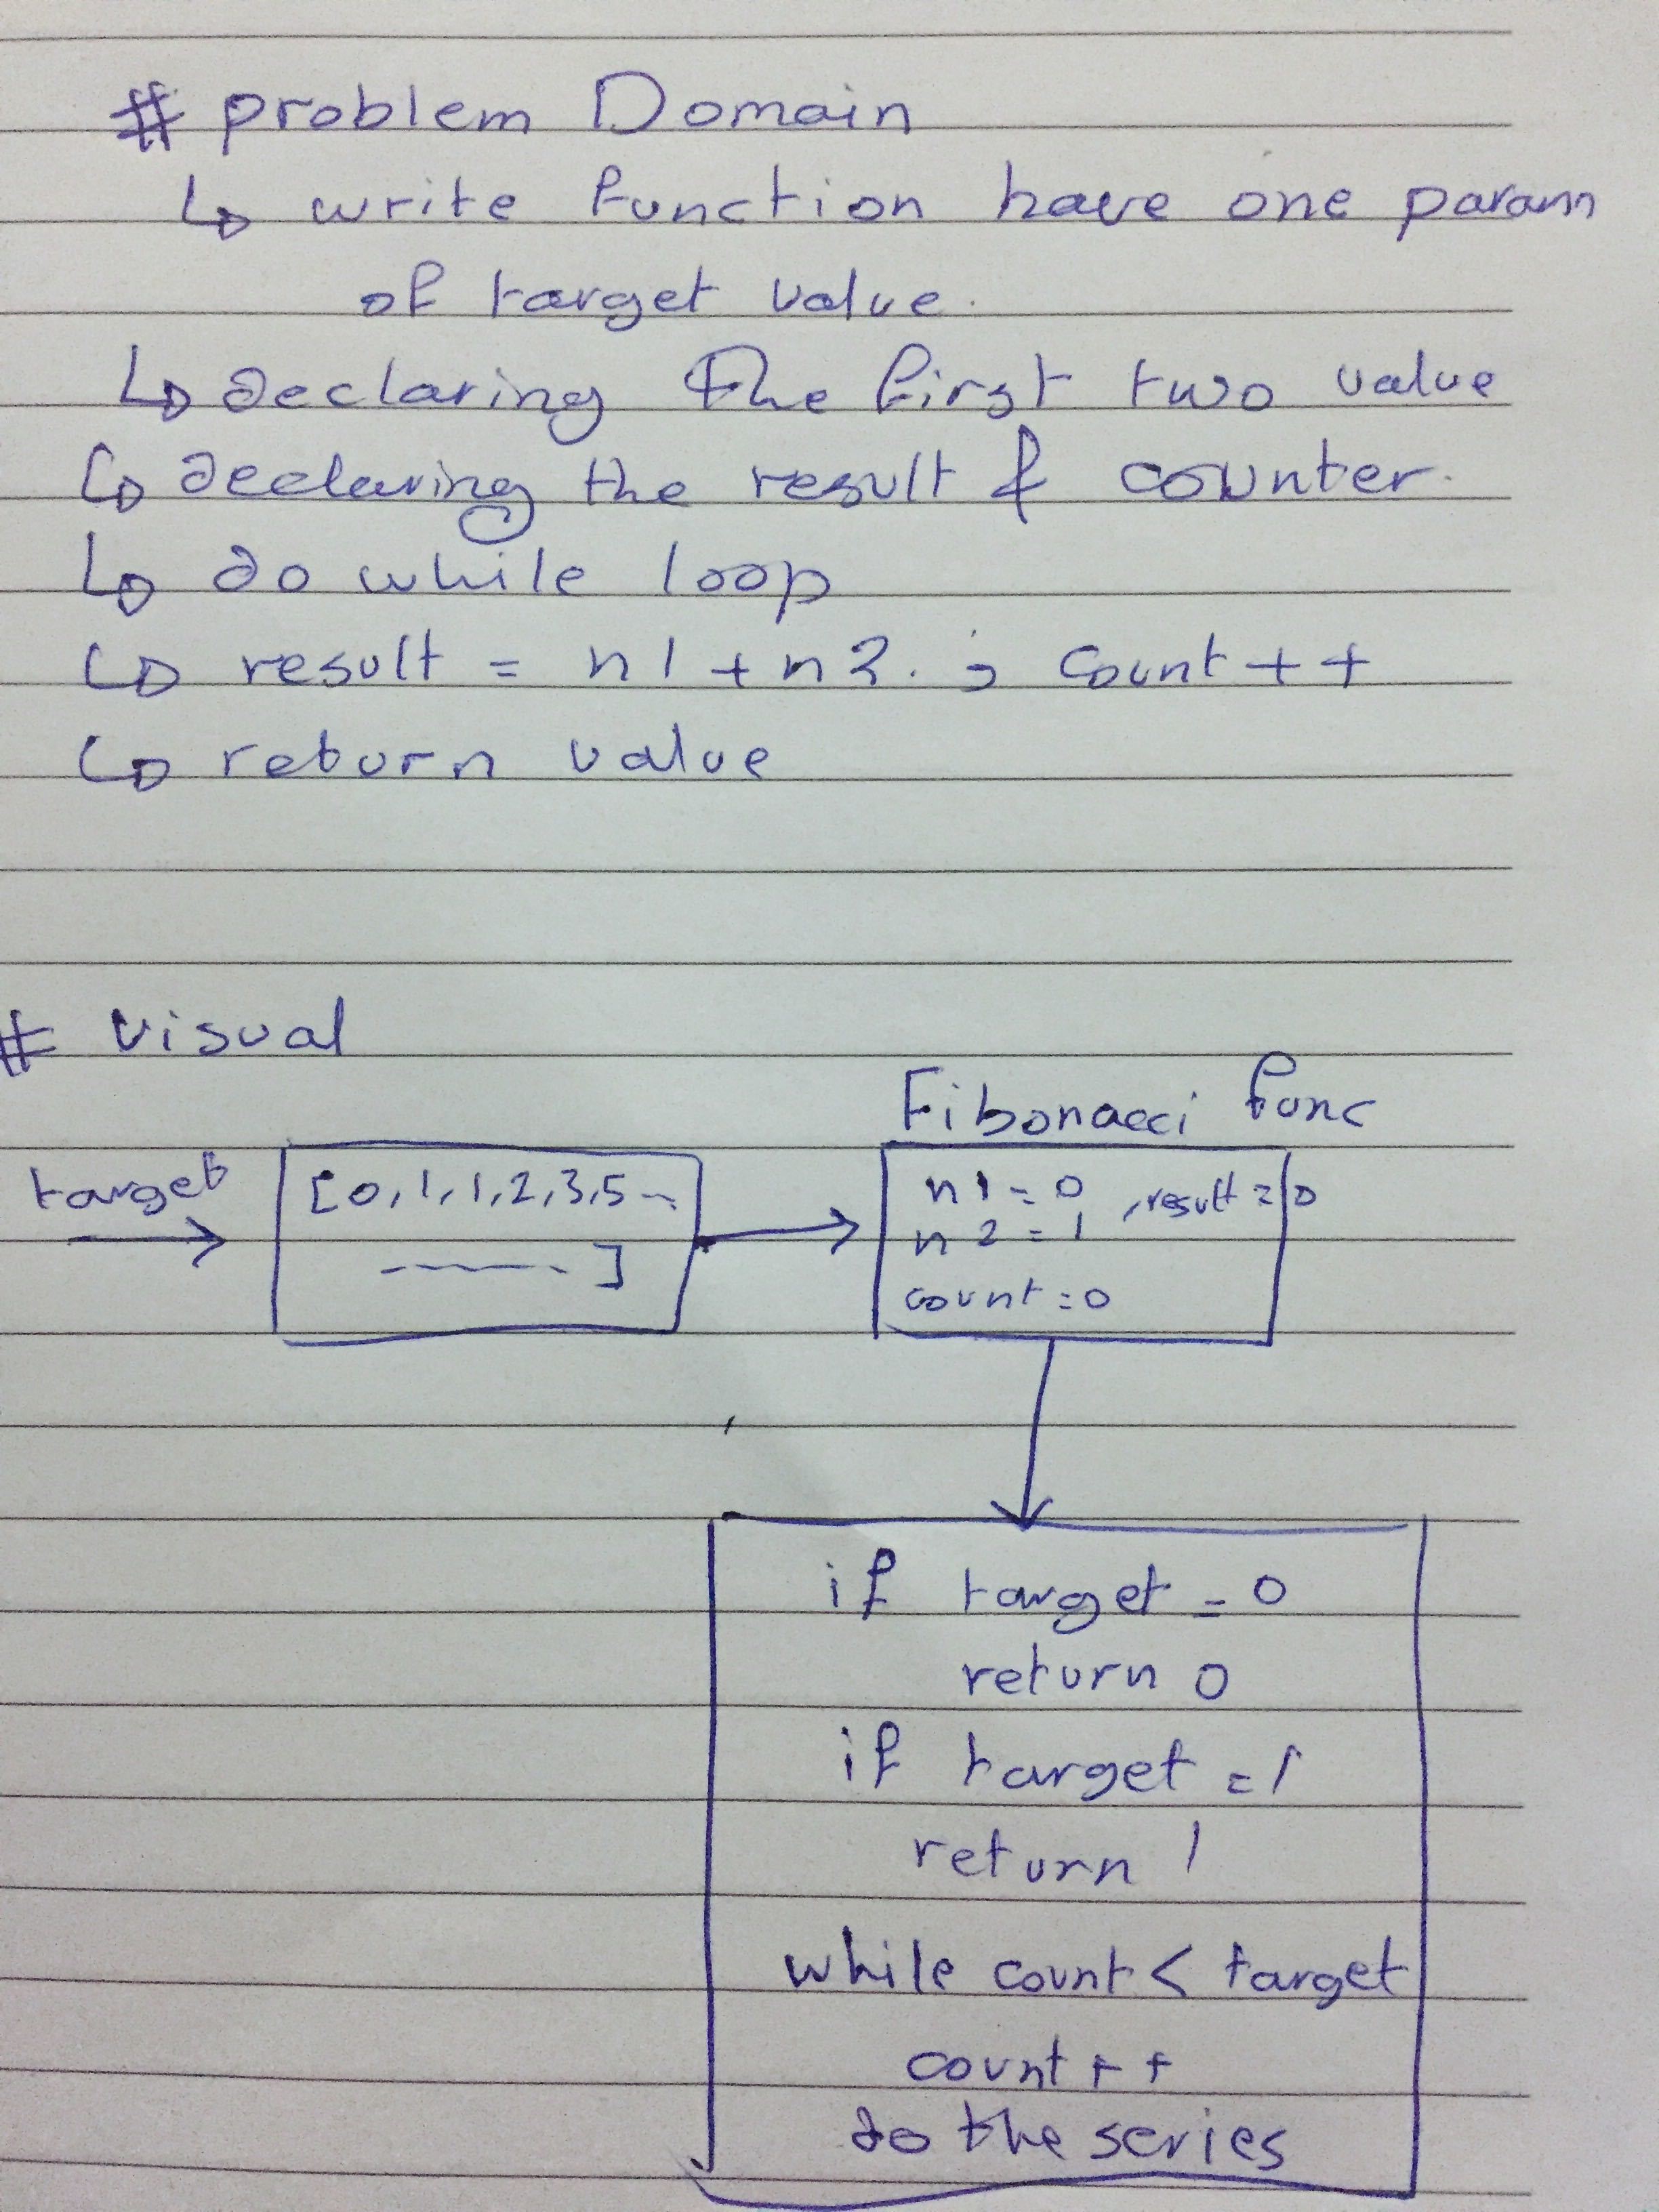 # problem Domain
↳ write function have one param
of target value.
↳ declaring the first two value
↳ declaring the result & counter.
↳ do while loop
↳ result = n1 + n2. ; count++
↳ return value
# visual
Fibonacci func
target
[0,1,1,2,3,5--
------]
n1 = 0 , result = 0
n2 = 1
count = 0
if target = 0
return 0
if target = 1
return 1
while count < target
count++
do the series